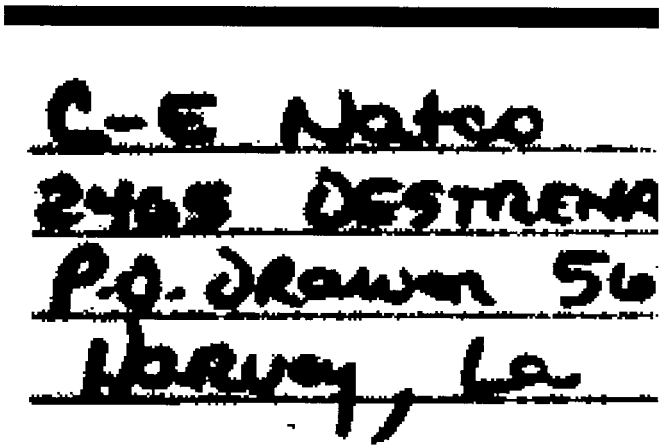 C-E Natco
DESTREHA
P.O. Drawer 56
Harvey, La